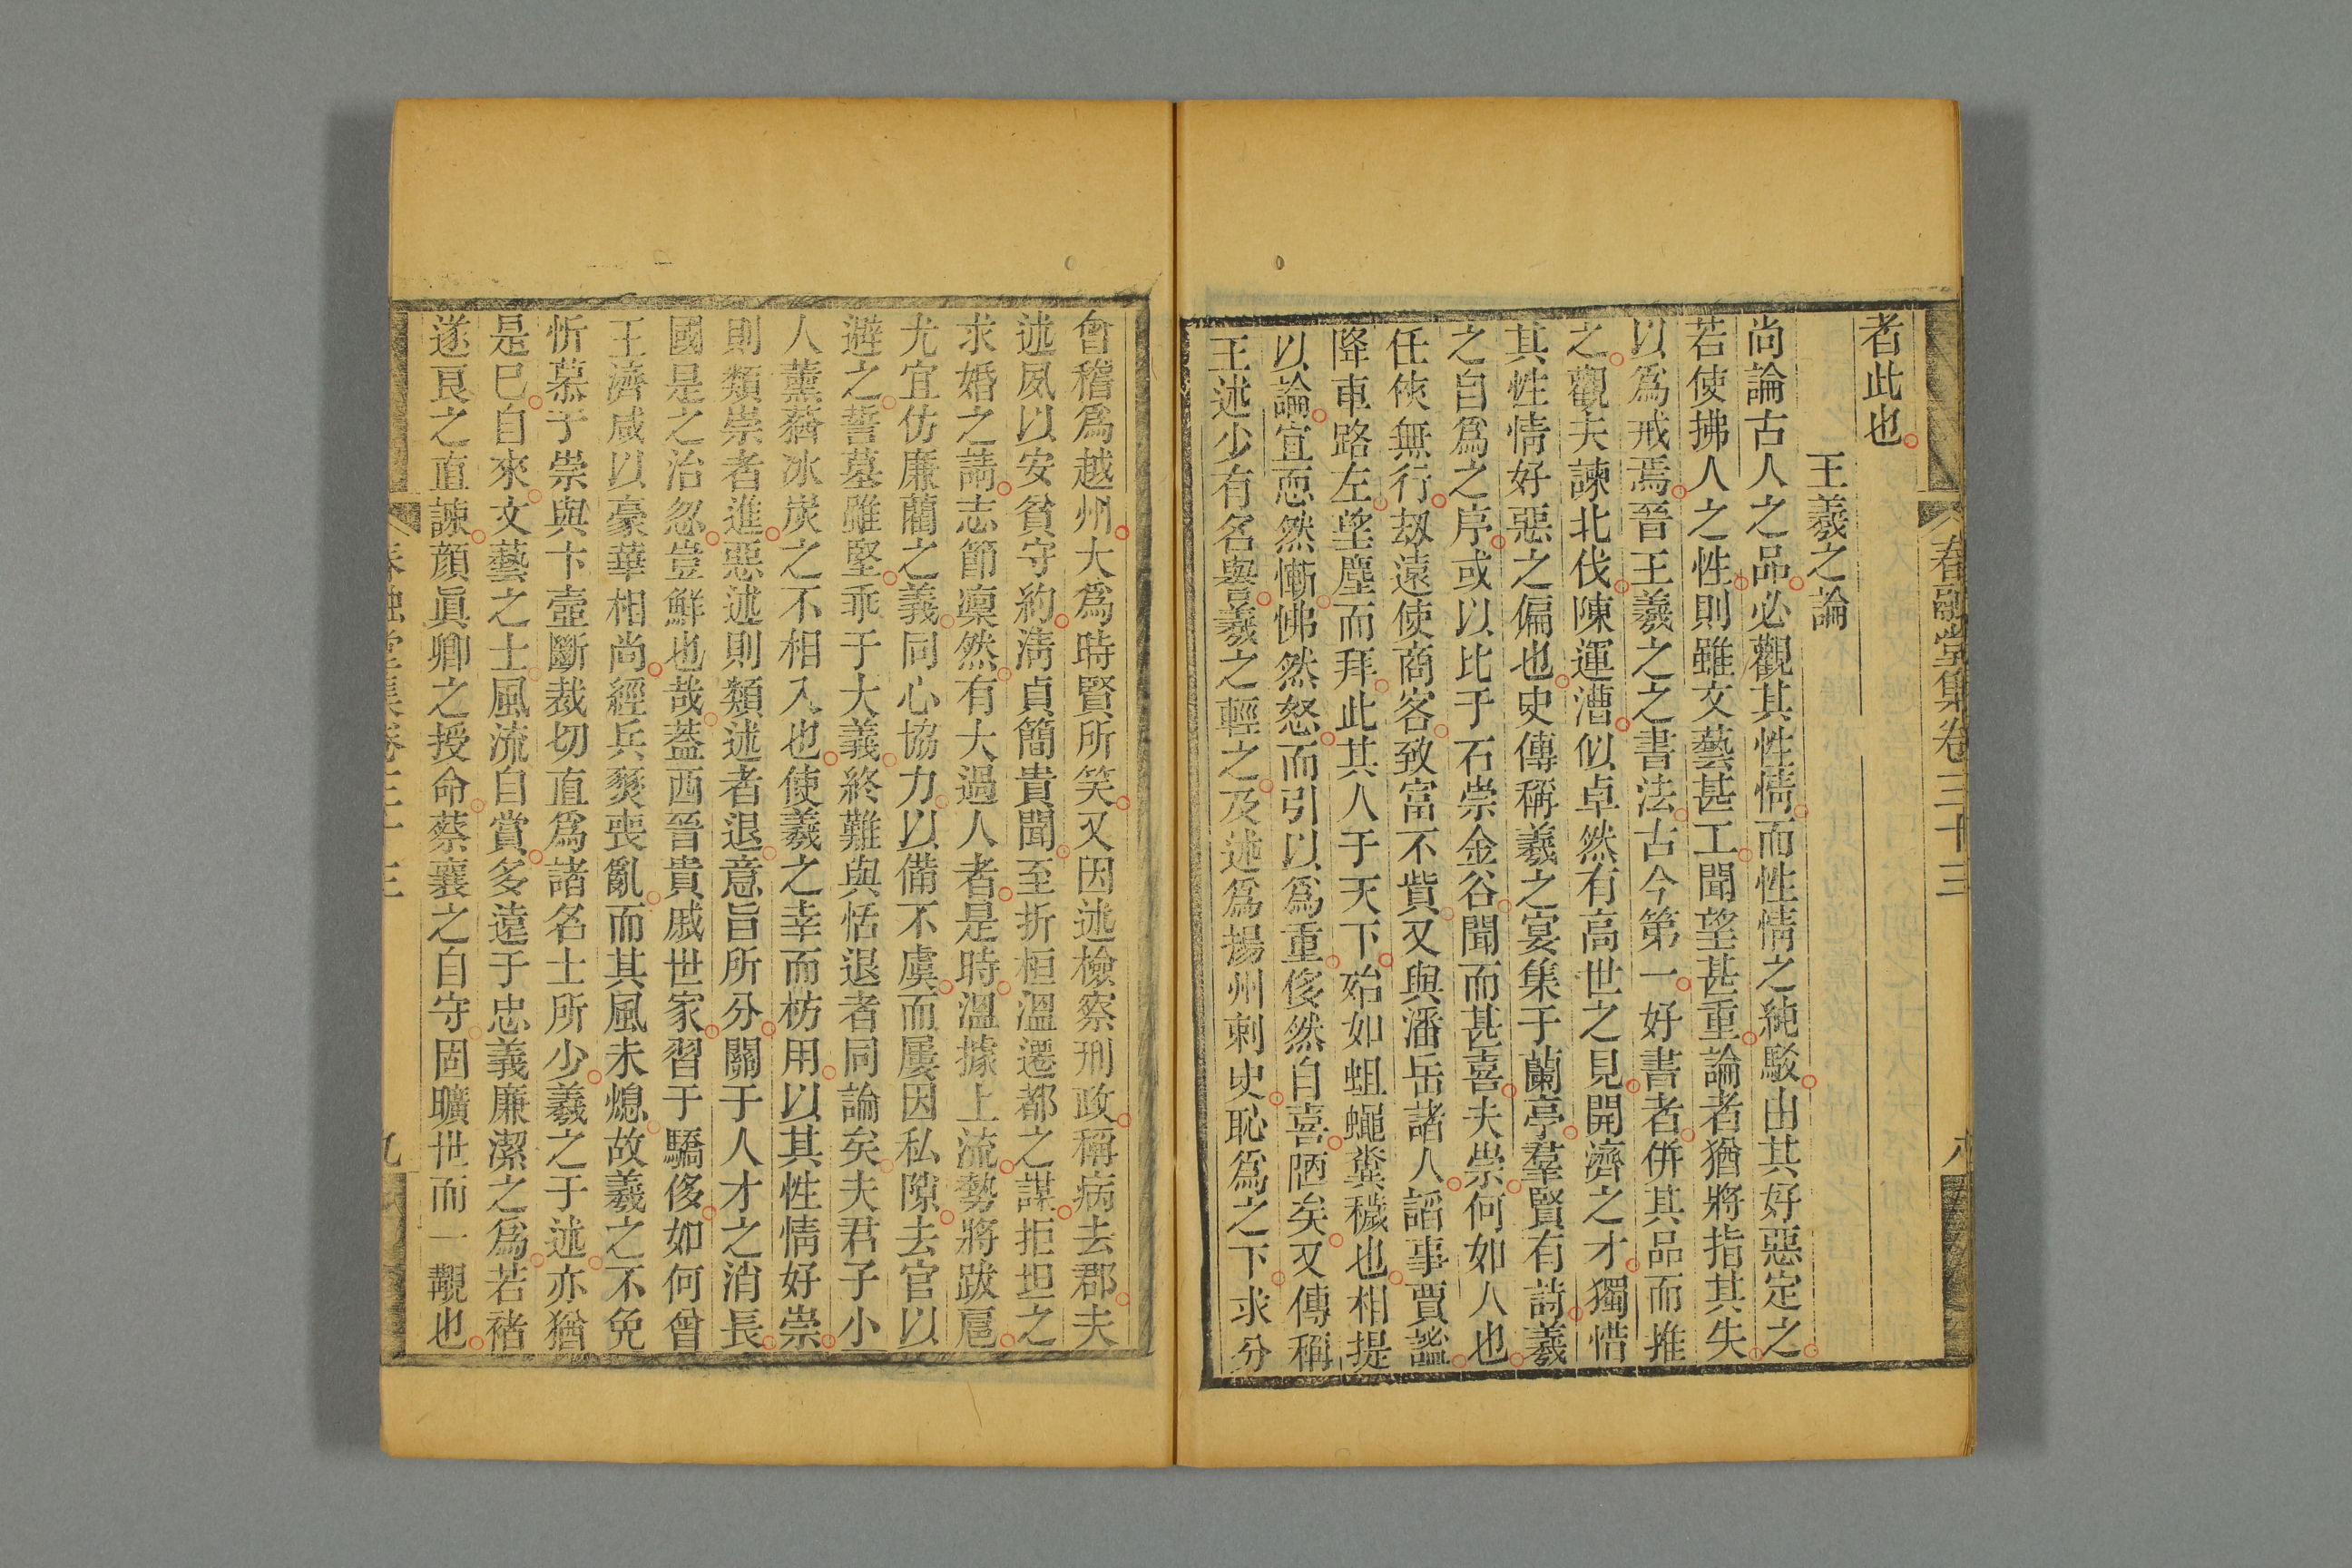 春融堂集卷三十三
八
者此也
王羲之論
尚論古人之品必觀其性情而性情之純駁由其好惡定之
若使拂人之性則雖文藝甚工聞望甚重論者猶將指其失
以爲戒焉晉王羲之之書法古今第一好書者併其品而推
之觀夫諫北伐陳運漕似卓然有高世之見開濟之才獨惜
其性情好惡之偏也史傳稱羲之宴集于蘭亭羣賢有詩羲
之自爲之序或以比于石崇金谷聞而甚喜夫崇何如人也
任俠無行刼遠使商客致富不貲又與潘岳諸人諂事賈謐
降車路左望塵而拜此其人于天下殆如蛆蠅糞穢也相提
以論宜恧然慚怫然怒而引以爲重侈然自喜陋矣又傳稱
王述少有名譽羲之輕之及述爲揚州刺史恥爲之下求分
會稽爲越州大爲時賢所笑又因述檢察刑政稱病去郡夫
述夙以安貧守約淸貞簡貴聞至折桓溫遷都之謀拒坦之
求婚之請志節凜然有大過人者是時溫據上流勢將跋扈
尤宜仿廉藺之義同心協力以備不虞而屢因私隙去官以
避之誓墓雖堅乖于大義終難與恬退者同論矣夫君子小
人薰蕕冰炭之不相入也使羲之幸而枋用以其性情好崇
則類崇者進惡述則類述者退意旨所分關于人才之消長
國是之治忽豈鮮也哉葢西晉貴戚世家習于驕侈如何曾
王濟咸以豪華相尚經兵燹喪亂而其風未熄故羲之不免
忻慕于崇與卞壼斷裁切直爲諸名士所少羲之于述亦猶
是已自來文藝之士風流自賞多遠于忠義廉潔之爲若褚
遂良之直諫顏眞卿之授命蔡襄之自守固曠世而一覯也
春融堂集卷三十三
九